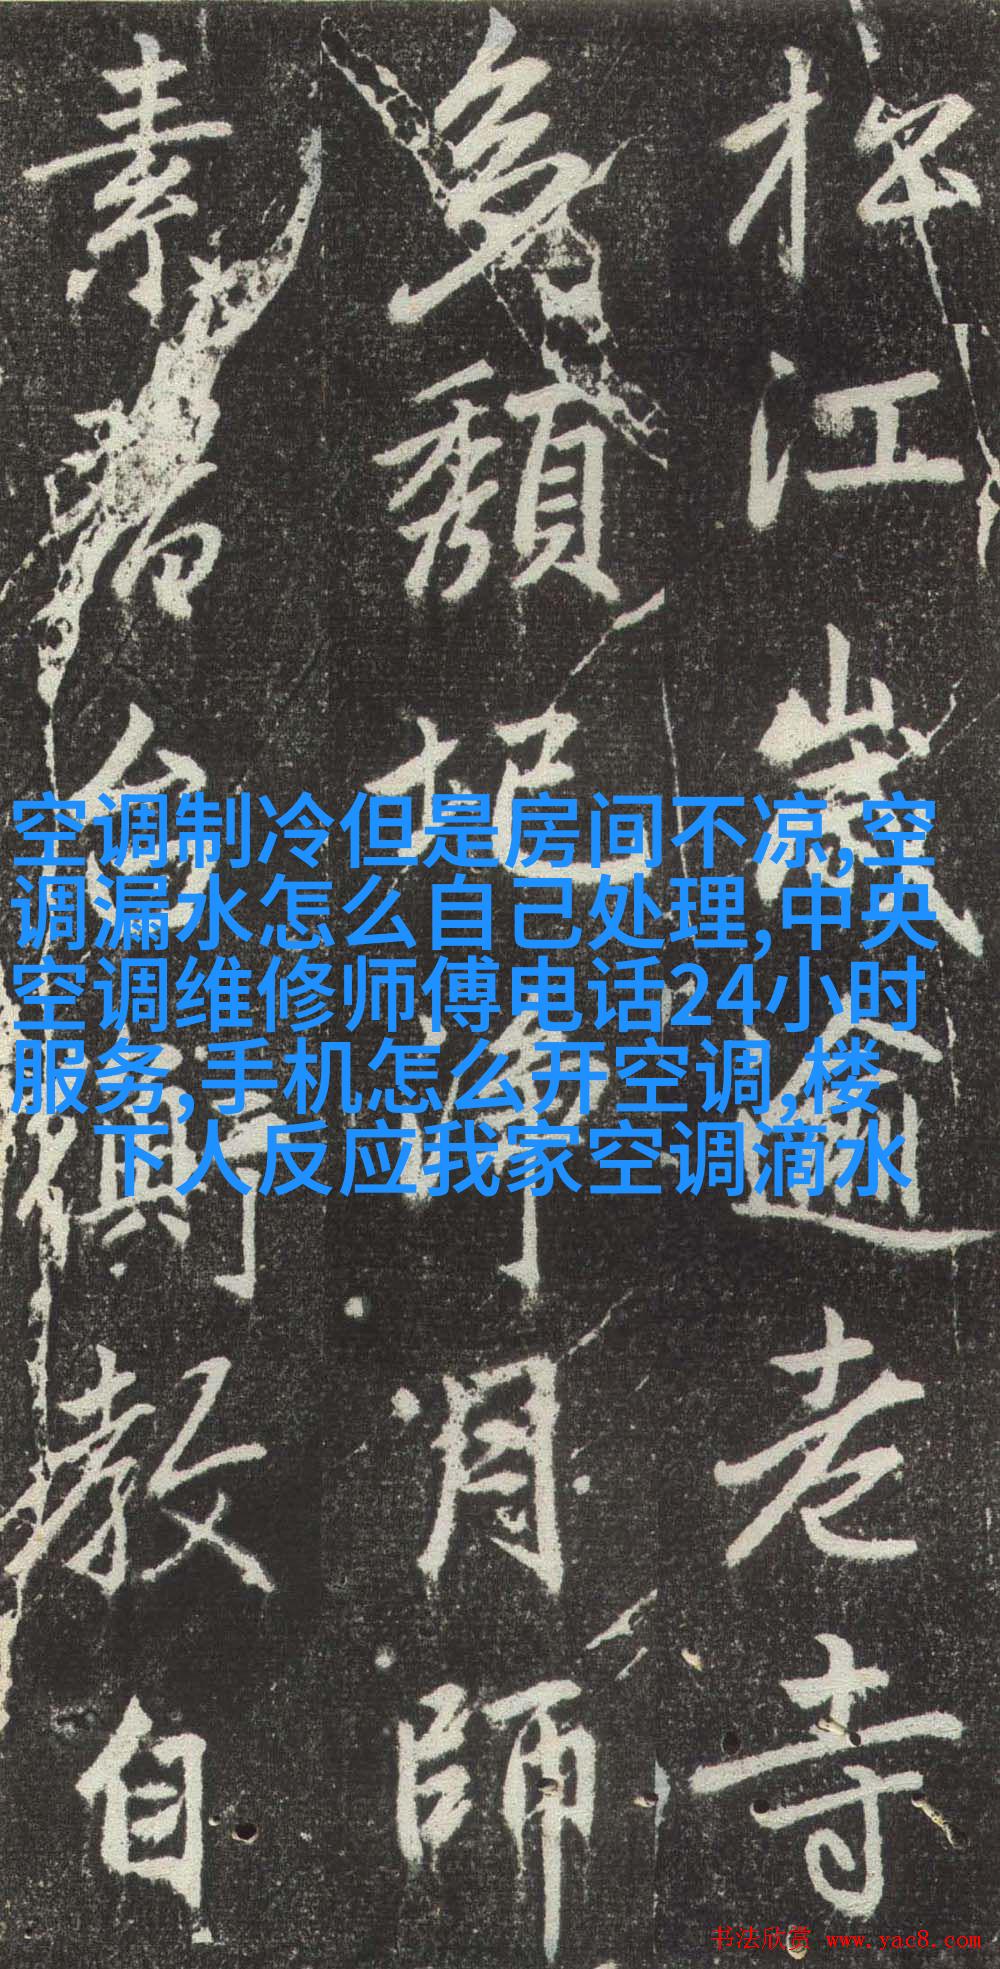 松江歲遒老寺
為頽圮淨月師
素蓄為傾教自
空调制冷但是房间不凉,空
调漏水怎么自己处理,中央
空调维修师傅电话24小时
服务,手机怎么开空调,楼
下人反应我家空调滴水
书法欣赏 www.yac8.com